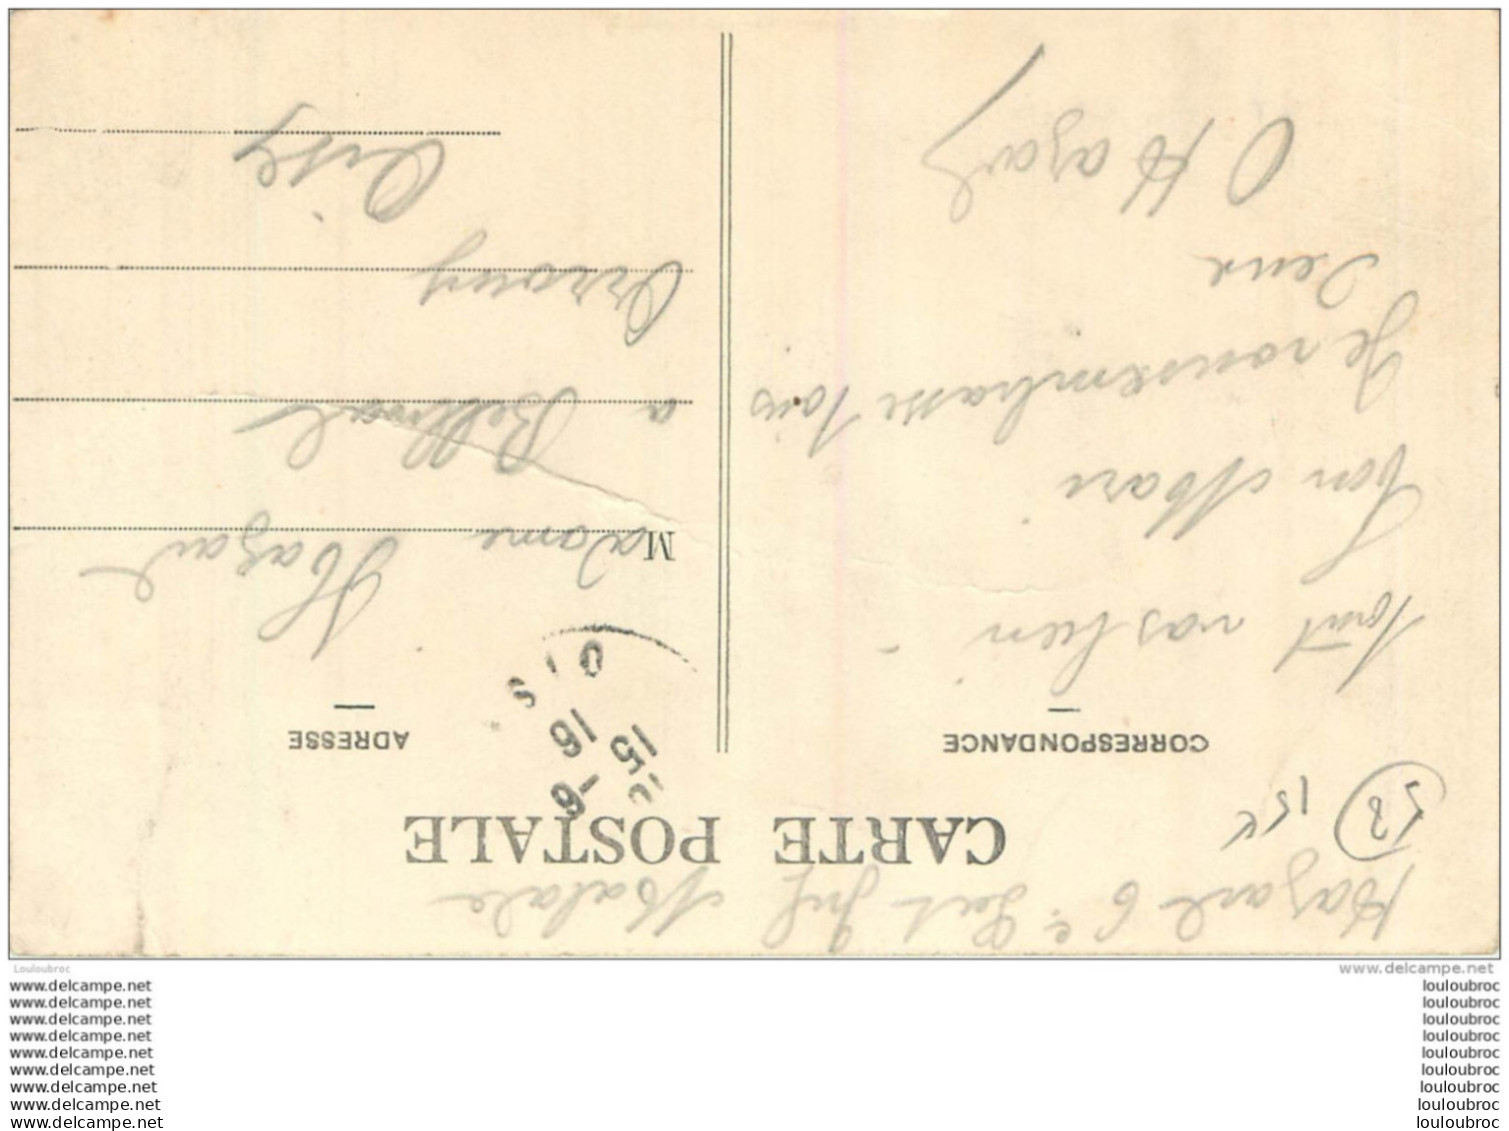 Hazard 6e Inf Malade
53
15
CARTE POSTALE
CORRESPONDANCE
tout vas bien
ton Mari
Je vous embrasse tous
Deux
O Hazard
ADRESSE
15
6-
16
O I S
Madame Hazard
a Bellival
Orrouy
Oise
www.delcampe.net
Louloubroc
www.delcampe.net
www.delcampe.net
www.delcampe.net
www.delcampe.net
www.delcampe.net
www.delcampe.net
www.delcampe.net
www.delcampe.net
www.delcampe.net
louloubroc
louloubroc
louloubroc
louloubroc
louloubroc
louloubroc
louloubroc
louloubroc
louloubroc